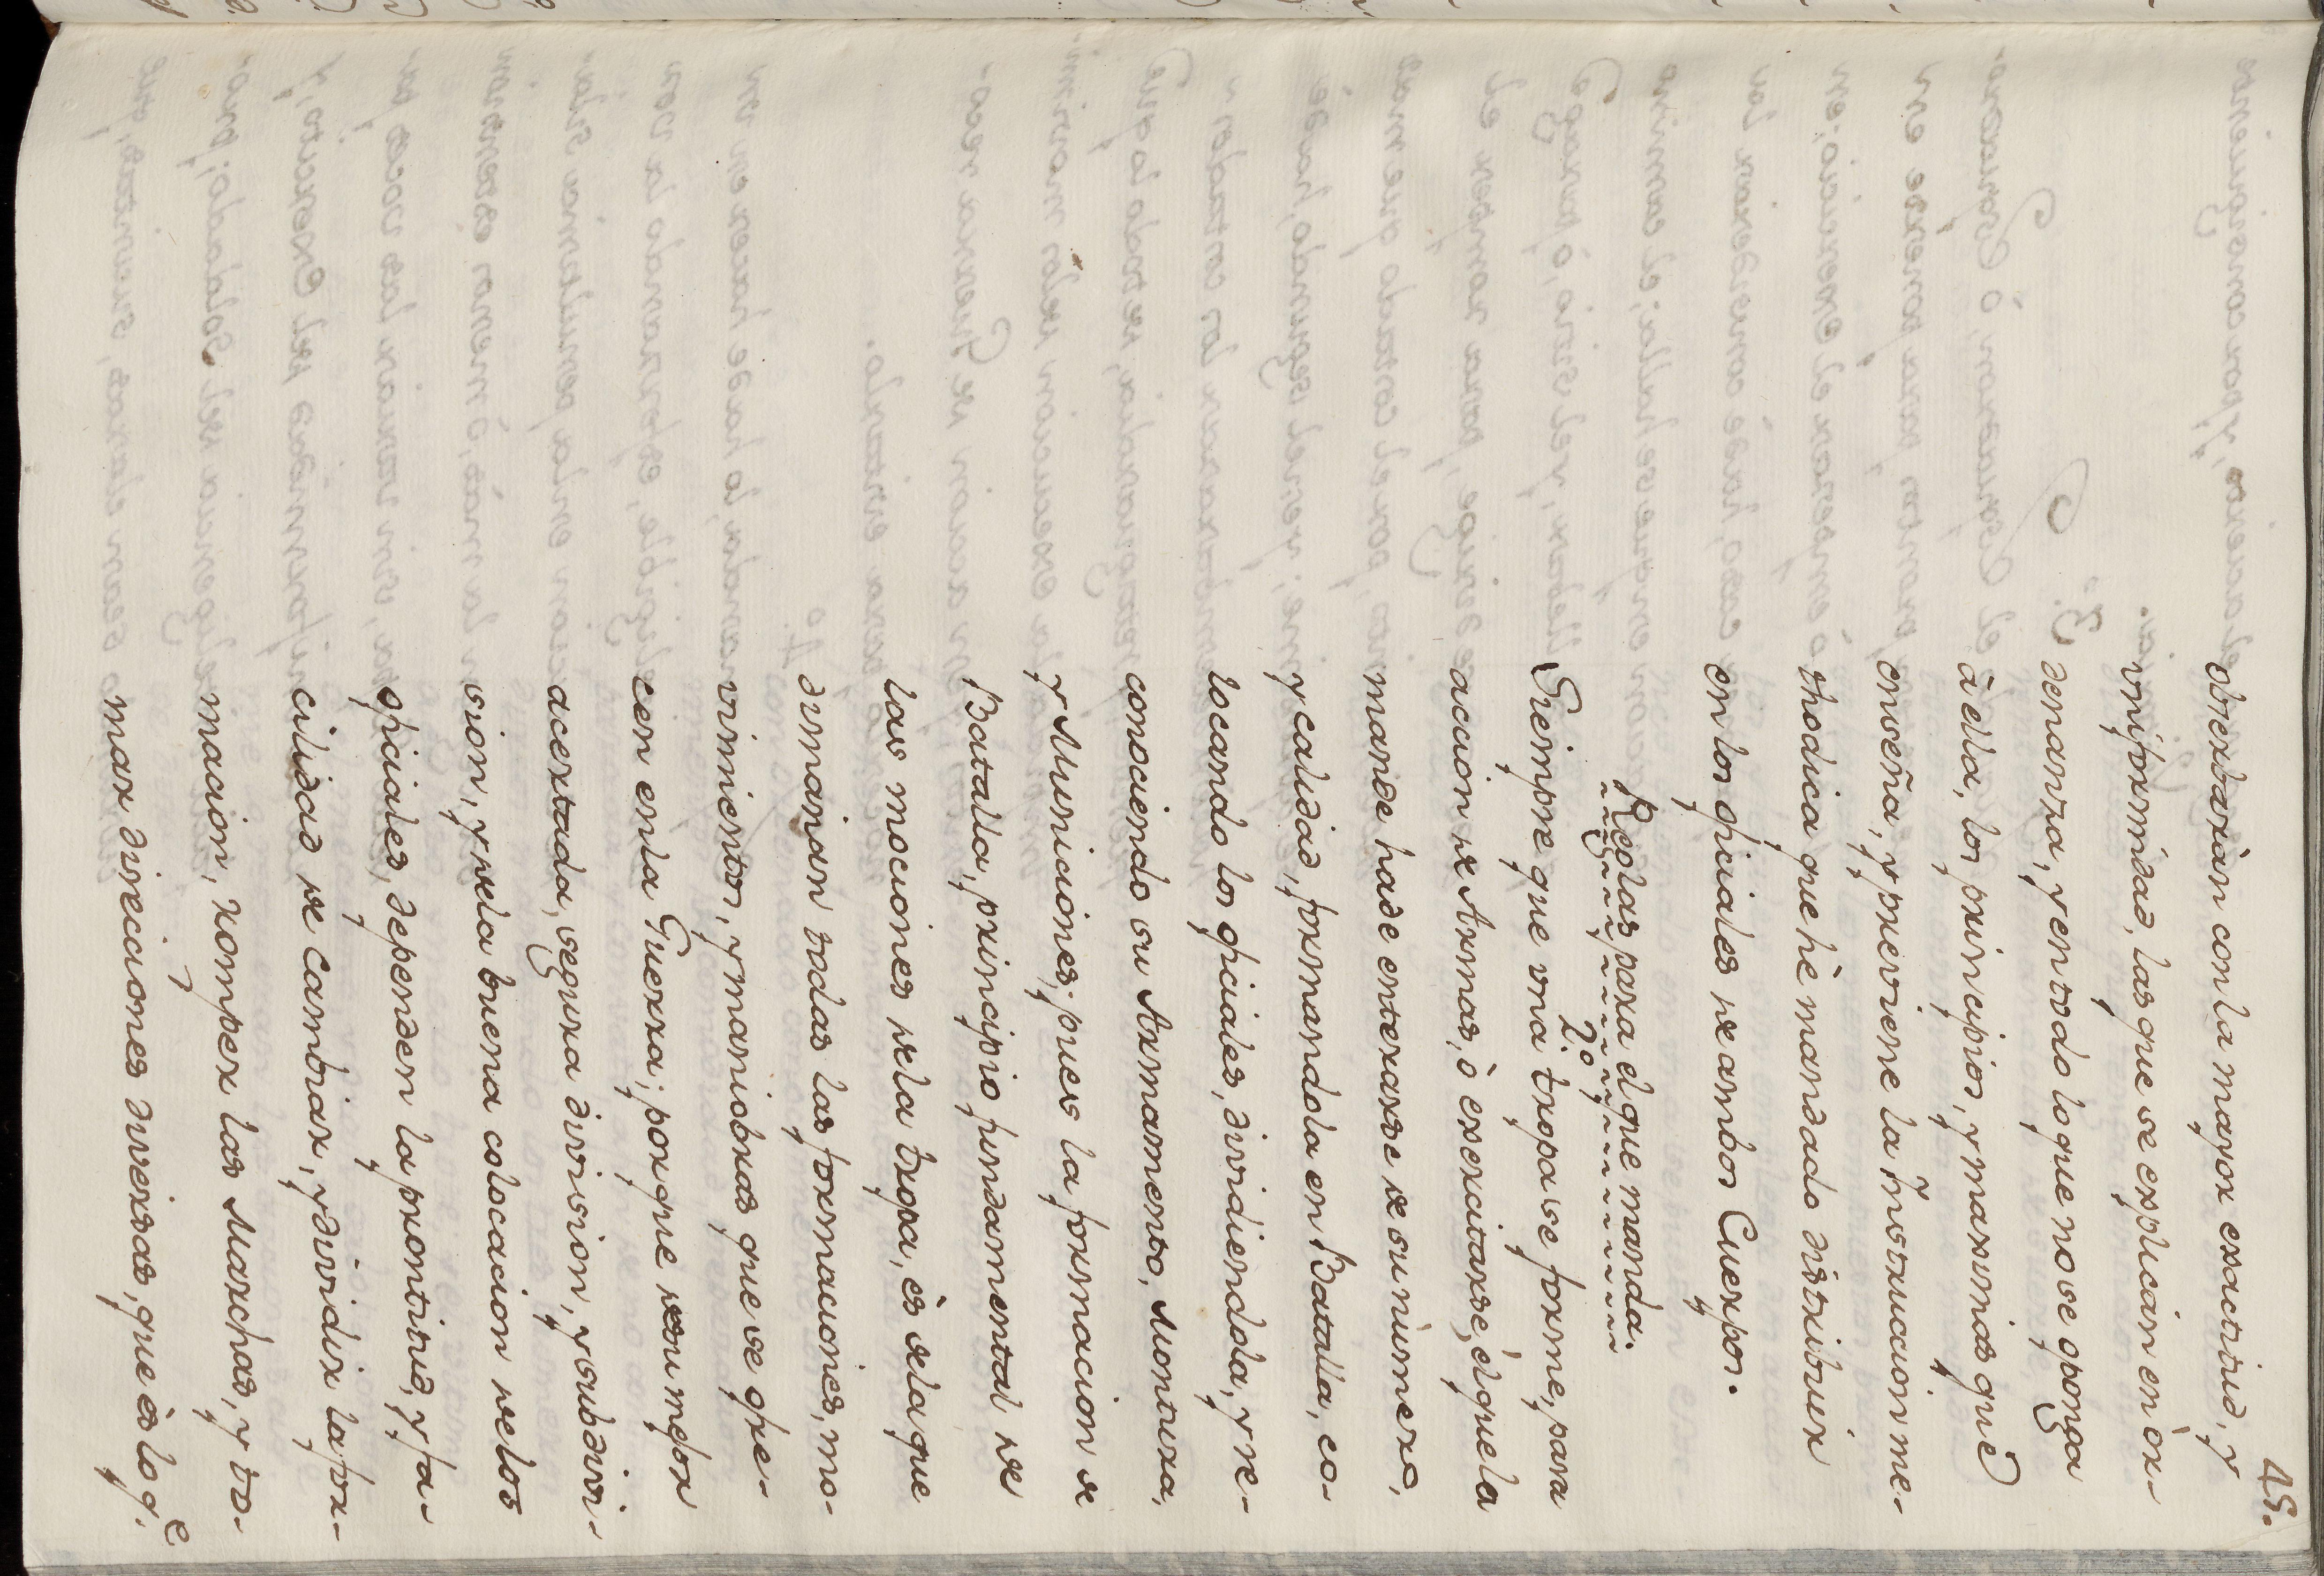 45.
observaràn con la mayor exactitud, y
uniformidad, las que se explican en òr-
denanza, y en todo lo que no se oponga
à ella, los principios, y maximas que
enseña, y previene la Instruccion me-
thodica que hè mandado distribuir
en los oficiales de ambos Cuerpos.
Reglas para el que manda.
2.º
Siempre que una tropa se forme, para
accion de Armas, ò exercitarse, el que la
mande hade enterarse de su número,
y calidad, formandola en Batalla, co-
locando los oficiales, dividiendola, y re-
conociendo su Armamento, Montura,
y Municiones; pues la formacion de
Batalla, principio fundamental de
las mociones de la tropa, ès de la que
dimanan todas las formaciones, mo-
vimientos, y maniobras, que se ofre-
cen en la Guerra; porque de su mejor
acertada, segura division, y subdivi-
sion, y de la buena colocacion de los
oficiales, dependen la prontitud, y fa-
cilidad de cambiar, y dividir la for-
macion, romper las Marchas, y to-
mar direcciones diversas, que ès lo q.e